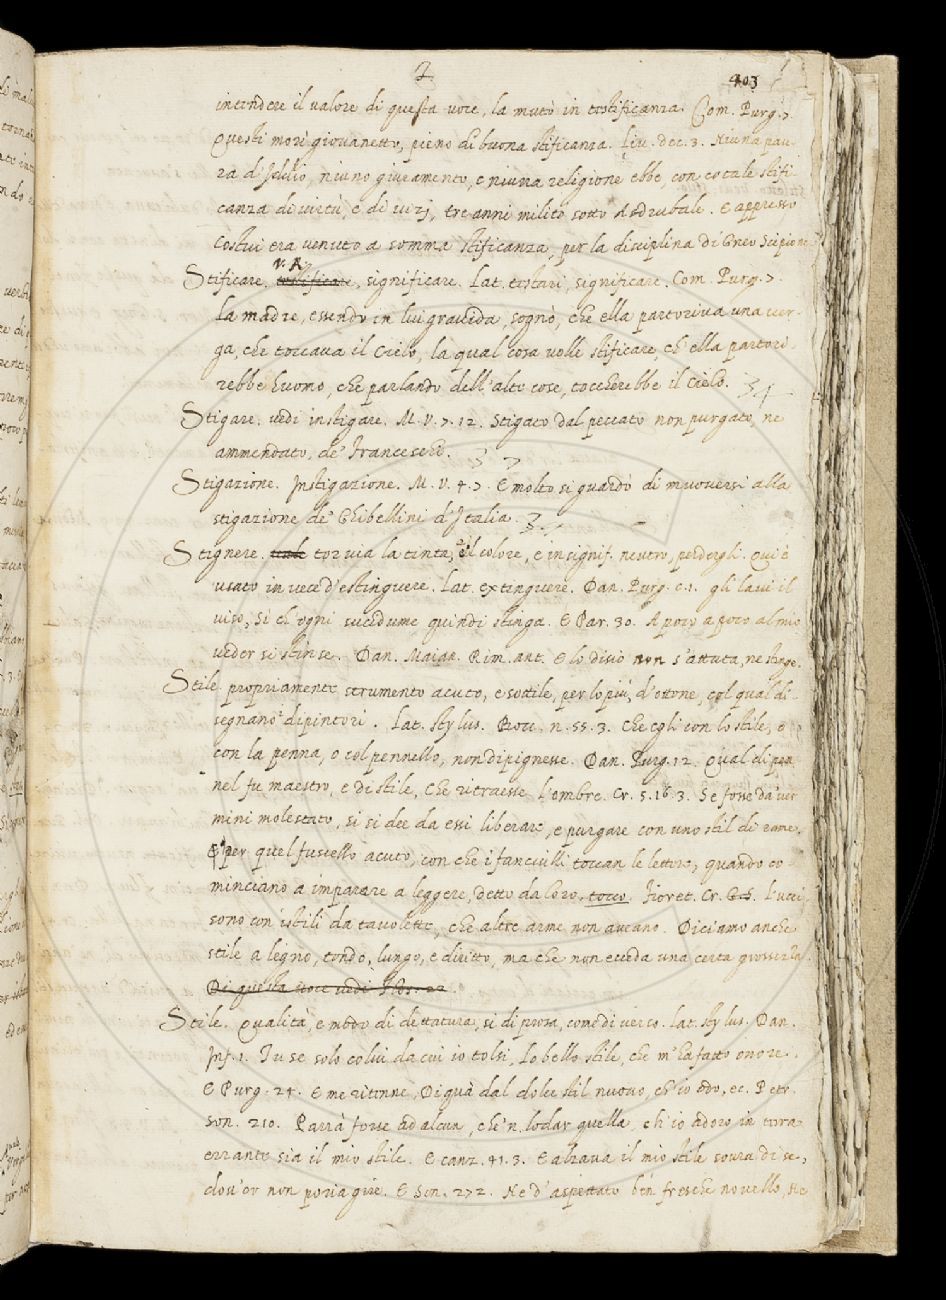 2 403
intendere il valore di questa voce, la mutò in testificanza. Com. Purg. 7.
Questi morì giovanetto, pieno di buona stificanza. Liv. dec. 3. Niuna pau-
ra d'Iddio, niuno giuramento, e niuna religione ebbe, con cotale stifi-
canza di virtù, e di vizj, tre anni militò sotto Asdrubale. E appresso
Costui era venuto a somma stificanza, per la disciplina di Gneo Scipione
v. A.
Stificare. testificare, significare. Lat. testari, significare. Com. Purg. 7.
La madre, essendo in lui gravida, sognò, che ella partoriva una ver-
ga, che toccava il Cielo, la qual cosa volle stificare, ch'ella partori-
rebbe huomo, che parlando dell'alte cose, toccherebbe il Cielo.
Stigare. vedi instigare. M. V. 7. 12. Stigato dal peccato non purgato, ne
ammendato, de' Franceschi.
Stigazione. Instigazione. M. V. 4. 7. E molto si guardò di muoversi alla
stigazione de' Ghibellini d'Italia.
Stignere. tor via la tinta, e 'l colore, e in signif. neutro, perdergli. Qui è
usato in vece d'estinguere. Lat. extinguere. Dan. Purg. c. 1. gli lavi il
viso, Sì ch'ogni sucidume quindi stinga. E Par. 30. A poco a poco al mio
veder si stinse. Dan. Maian. Rim. ant. E lo disio non s'attuta, ne stinge.
Stile. propriamente strumento acuto, e sottile, per lo più, d'ottone, col qual di-
segnano i dipintori. Lat. stylus. Bocc. n. 55. 3. Che egli con lo stile, e
con la penna, o col pennello, non dipignesse. Dan. Purg. 12. Qual di pen-
nel fu maestro, e di stile, Che ritraesse l'ombre. Cr. 5. 16. 3. Se fosse da' ver-
mini molestato, si si dee da essi liberare, e purgare con uno stil di rame.
E per quel fuscello acuto, con che i fanciulli toccan le lettere, quando co-
minciano a imparare a leggere, detto da loro, tocco. Fioret. Cr. L'ucci
sono con istili da tavolette, che altre arme non aveano. Diciamo anche
stile a legno, tondo, lungo, e diritto, ma che non ecceda una certa grossezza.
Di questa voce vedi Flos. 22
Stile. Qualità, e modo di dettatura, sì di prosa, come di verso. Lat. stylus. Dan.
Inf. 1. Tu se solo colui, da cui io tolsi, Lo bello stile, che m'ha fatto onore.
E Purg. 24. E me ritenne, Di quà dal dolce stil nuovo, ch'io odo, ec. Petr.
Son. 210. Parrà forse ad alcun, che 'n lodar quella, ch'io adoro in terra
errante sia il mio stile. E canz. 41. 3. E alzava il mio stile sovra di se,
dov'or non poria gire. E Son. 272. Ne d'aspettato ben fresche novelle, Ne